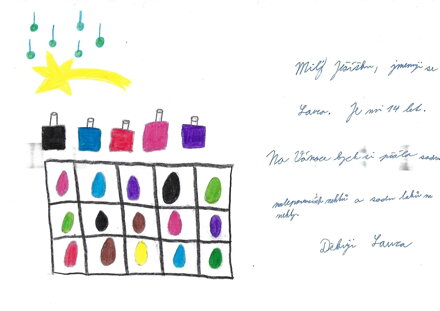 Milý Ježíšku, jmenuji se
Laura. Je mi 14 let.
Na Vánoce bych si přála sadu
nalepovacích nehtů a sadu laků na
nehty.
Děkuji Laura